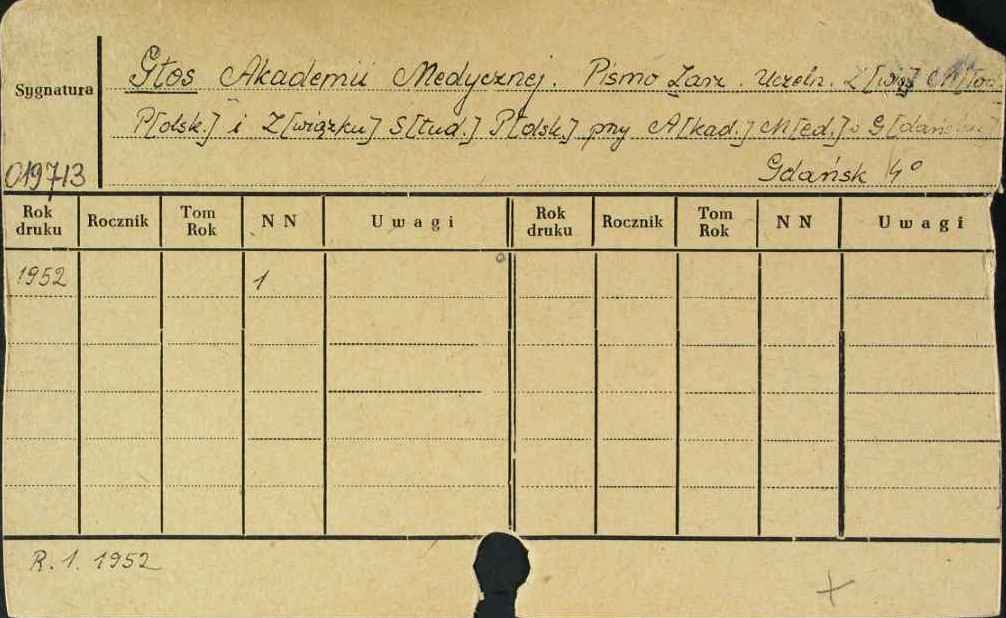 Głos Akademii Medycznej. Pismo Zarz. Uczeln. Z[wią] M[oc.
Sygnatura
P[olsk.] i Z[wiązku] S[tud.] P[olsk.] przy A[kad.] M[ed.] G[dańsku]
019713
Gdańsk 4°
Rok druku Rocznik Tom Rok NN Uwagi Rok druku Rocznik Tom Rok NN Uwagi
1952 1
R. 1. 1952
+